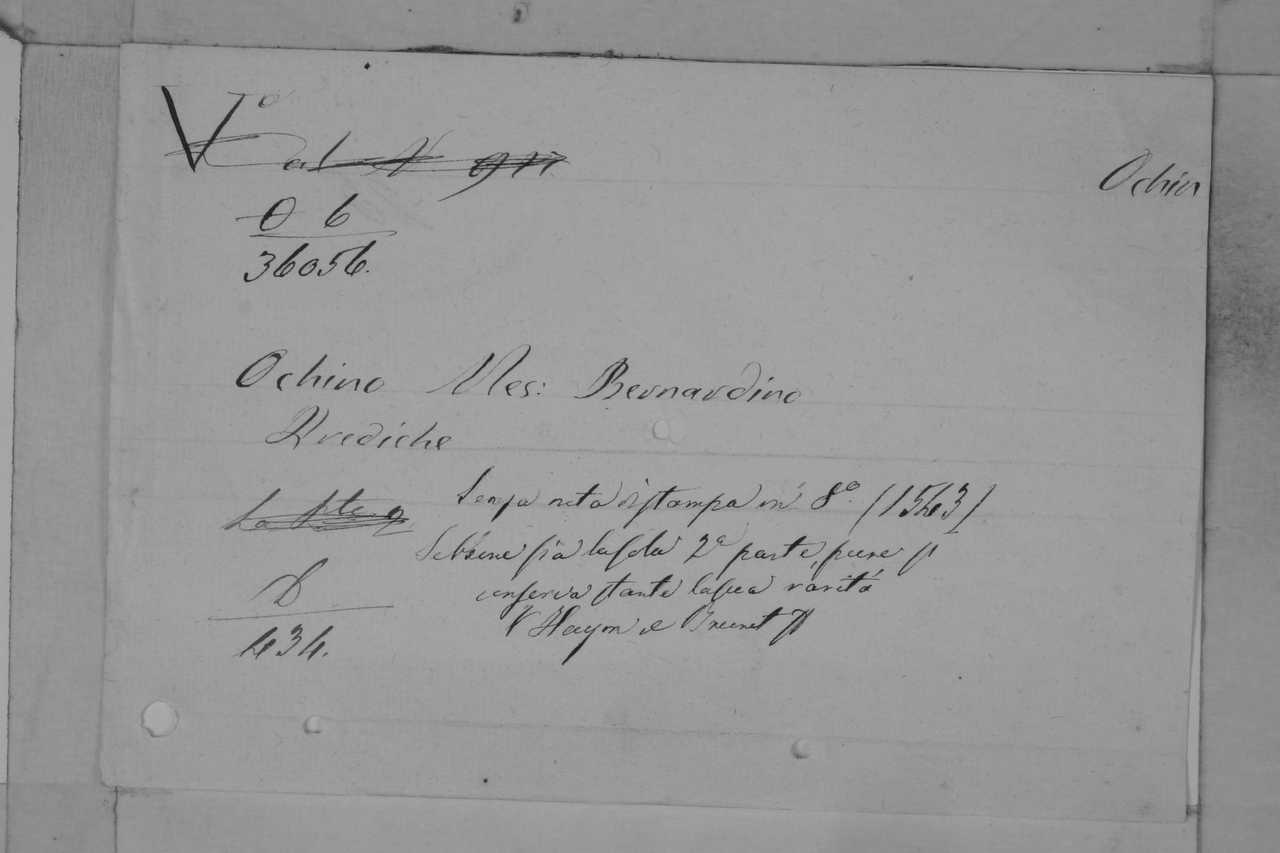 Vo
Ochin
O 6
36056.
Ochino Mes: Bernardino
Prediche
Senza nota di stampa in 8o. (1543)
Sebbene sia la sola 2a parte pure si
conserva stante la sua rarità
V Haym e Brunet
D
434.